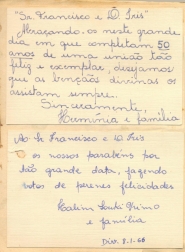 "Sr. Francisco e D. Iris"
Abraçando-os neste grande
dia em que completam 50
anos de uma união tão
feliz e exemplar, desejamos
que as bençãos divinas os
assistam sempre.
Sinceramente,
Herminia e família
Ao Sr. Francisco e D. Iris
os nossos parabens por
tão grande data, fazendo
votos de perenes felicidades
Primo
e família